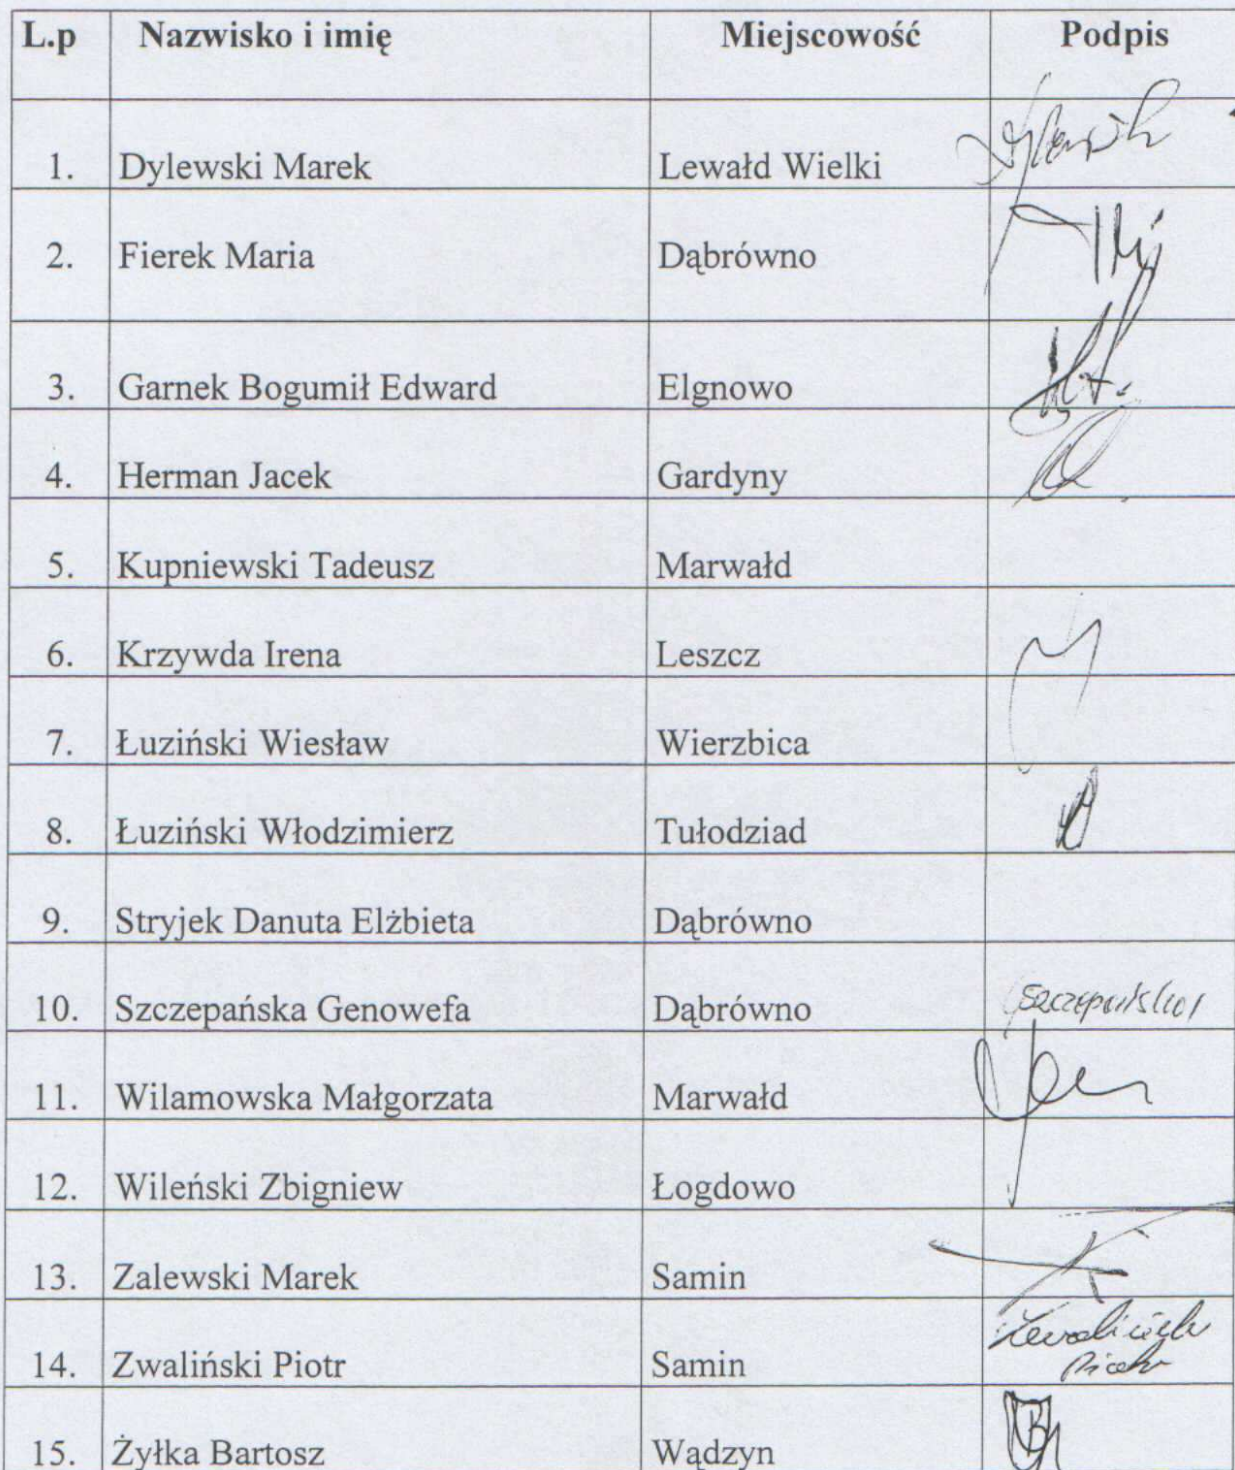 L.p Nazwisko i imię Miejscowość Podpis
1. Dylewski Marek Lewałd Wielki
2. Fierek Maria Dąbrówno
3. Garnek Bogumił Edward Elgnowo
4. Herman Jacek Gardyny
5. Kupniewski Tadeusz Marwałd
6. Krzywda Irena Leszcz
7. Łuziński Wiesław Wierzbica
8. Łuziński Włodzimierz Tułodziad
9. Stryjek Danuta Elżbieta Dąbrówno
10. Szczepańska Genowefa Dąbrówno Szczepańska
11. Wilamowska Małgorzata Marwałd
12. Wileński Zbigniew Łogdowo
13. Zalewski Marek Samin
14. Zwaliński Piotr Samin
15. Żyłka Bartosz Wądzyn